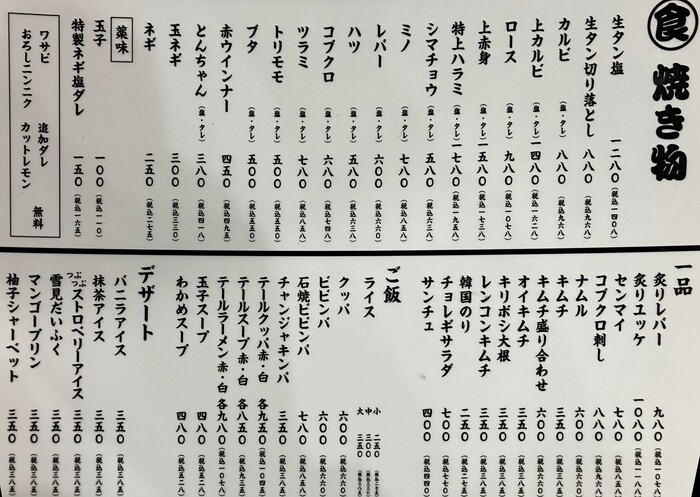 食 焼き物
生タン塩 一二八〇（税込一四〇八）
生タン切り落とし 八八〇（税込九六八）
カルビ（塩・タレ） 八八〇（税込九六八）
上カルビ（塩・タレ） 一四八〇（税込一六二八）
ロース（塩・タレ） 九八〇（税込一〇七八）
上赤身（塩・タレ） 一五八〇（税込一七三八）
特上ハラミ（塩・タレ） 一七八〇（税込一九五八）
シマチョウ（塩・タレ） 五八〇（税込六三八）
ミノ（塩・タレ） 七八〇（税込八五八）
レバー（塩・タレ） 六〇〇（税込六六〇）
ハツ（塩・タレ） 五八〇（税込六三八）
コブクロ（塩・タレ） 六八〇（税込七四八）
ツラミ（塩・タレ） 七八〇（税込八五八）
トリモモ（塩・タレ） 五〇〇（税込五五〇）
ブタ（塩・タレ） 五〇〇（税込五五〇）
赤ウインナー 四五〇（税込四九五）
とんちゃん（塩・タレ） 三八〇（税込四一八）
玉ネギ 三〇〇（税込三三〇）
ネギ 二五〇（税込二七五）
薬味
玉子 一〇〇（税込一一〇）
特製ネギ塩ダレ 一五〇（税込一六五）
ワサビ 追加ダレ
おろしニンニク カットレモン 無料
一品
炙りレバー 九八〇
炙りユッケ 一〇八〇
センマイ 七八〇
コブクロ刺し 八八〇
ナムル 六〇〇
キムチ 三五〇
キムチ盛り合わせ 六〇〇
オイキムチ 三五〇
キリボシ大根 三五〇
レンコンキムチ 三五〇
韓国のり 二五〇
チョレギサラダ 七〇〇
サンチュ 四〇〇
ご飯
ライス 小 二五〇 中 三〇〇 大 三五〇
クッパ 六〇〇
ビビンバ 六〇〇
石焼ビビンバ 七八〇
チャンジャキンパ 三五〇
テールクッパ 赤・白 各九五〇
テールスープ 赤・白 各八五〇
テールラーメン 赤・白 各九八〇
玉子スープ 四八〇
わかめスープ 四八〇
デザート
バニラアイス 三五〇
抹茶アイス 三五〇
つぶつぶストロベリーアイス 三五〇
雪見だいふく 三五〇
マンゴープリン 三五〇
柚子シャーベット 三五〇